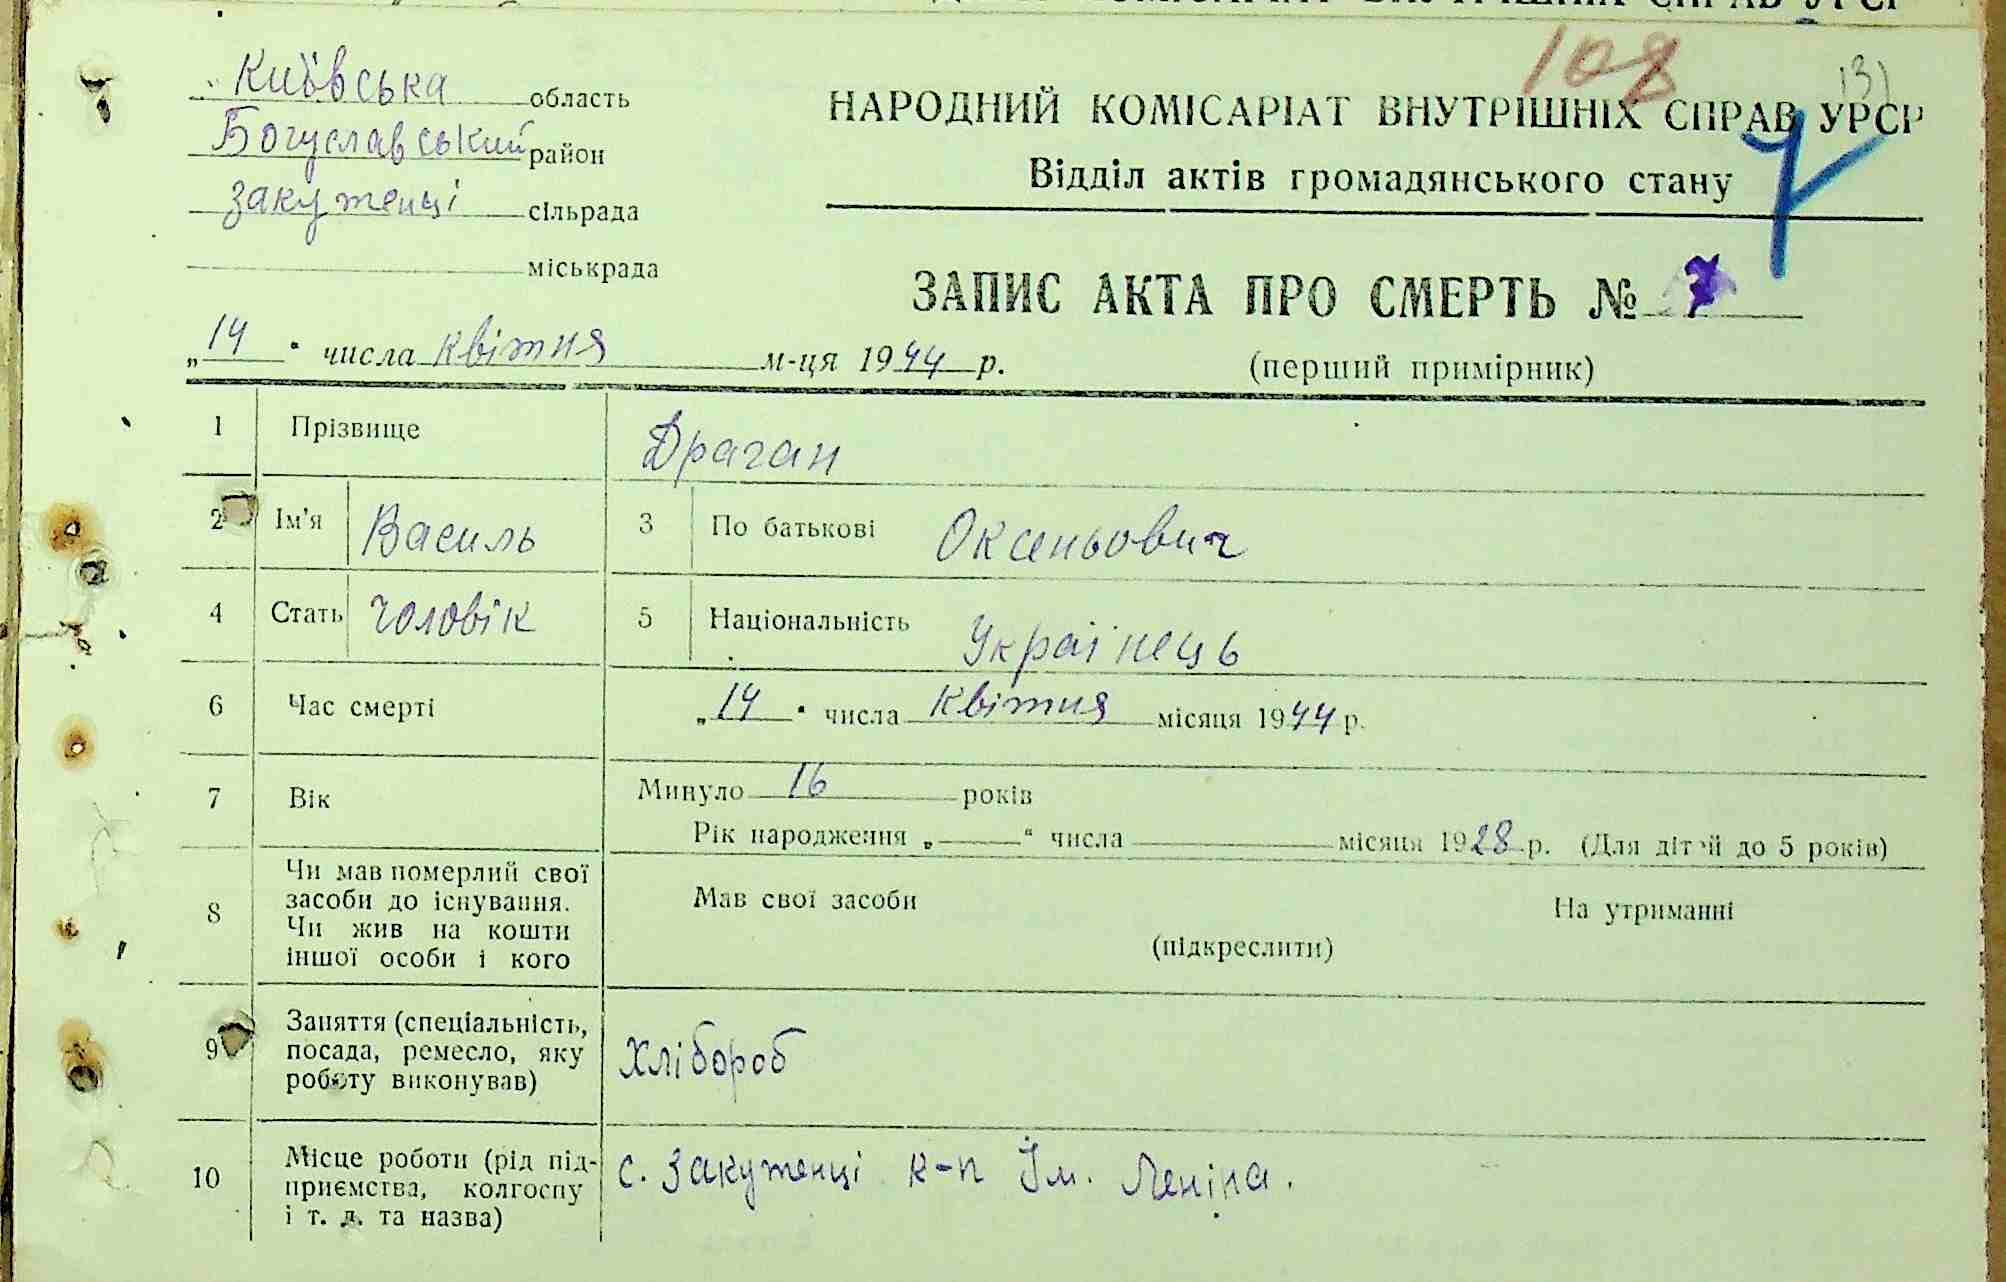 108
131
Київська область
Богуславський район
Закутенці сільрада
міськрада
НАРОДНИЙ КОМІСАРІАТ ВНУТРІШНІХ СПРАВ УРСР
Відділ актів громадянського стану
ЗАПИС АКТА ПРО СМЕРТЬ № 7
(перший примірник)
„14“ числа квітня м-ця 1944 р.
1 Прізвище Драган
2 Ім'я Василь 3 По батькові Оксеньович
4 Стать Чоловік 5 Національність Українець
6 Час смерті „14“ числа квітня місяця 1944 р.
7 Вік Минуло 16 років
Рік народження „ “ числа місяця 1928 р. (Для дітей до 5 років)
8 Чи мав померлий свої
засоби до існування.
Чи жив на кошти
іншої особи і кого
Мав свої засоби На утриманні
(підкреслити)
9 Заняття (спеціальність,
посада, ремесло, яку
роботу виконував)
Хлібороб
10 Місце роботи (рід під-
приємства, колгоспу
і т. д. та назва)
с. Закутенці к-п Ім. Леніна.